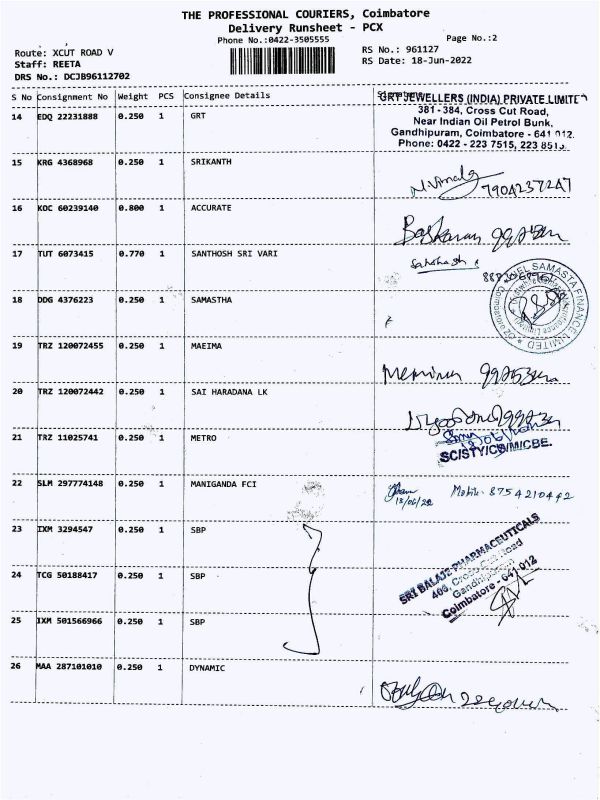 THE PROFESSIONAL COURIERS, Coimbatore
Delivery Runsheet - PCX
Phone No.:0422-3505555
Page No.:2
Route: XCUT ROAD V
RS No.: 961127
Staff: REETA
RS Date: 18-Jun-2022
DRS No.: DCJB96112702
S No Consignment No Weight PCS Consignee Details
14 EDQ 22231888 0.250 1 GRT
GRT JEWELLERS (INDIA) PRIVATE LIMITE
381 - 384, Cross Cut Road,
Near Indian Oil Petrol Bunk,
Gandhipuram, Coimbatore - 641 012.
Phone: 0422 - 223 7515, 223 8515.
15 KRG 4368968 0.250 1 SRIKANTH
7904237247
16 KOC 60239140 0.800 1 ACCURATE
Baskaran
17 TUT 6073415 0.770 1 SANTHOSH SRI VARI
Santhosh
18 DDG 4376223 0.250 1 SAMASTHA
SAMASTA FINANCE LIMITED
19 TRZ 120072455 0.250 1 MAEIMA
20 TRZ 120072442 0.250 1 SAI HARADANA LK
21 TRZ 11025741 0.250 1 METRO
SC/STY/CS/M/CBE.
22 SLM 297774148 0.250 1 MANIGANDA FCI
Mobile - 8754210442
23 IXM 3294547 0.250 1 SBP
SRI BALAJI PHARMACEUTICALS
406, Cross Cut Road
Gandhipuram
Coimbatore - 641 012
24 TCG 50188417 0.250 1 SBP
25 IXM 501566966 0.250 1 SBP
26 MAA 287101010 0.250 1 DYNAMIC